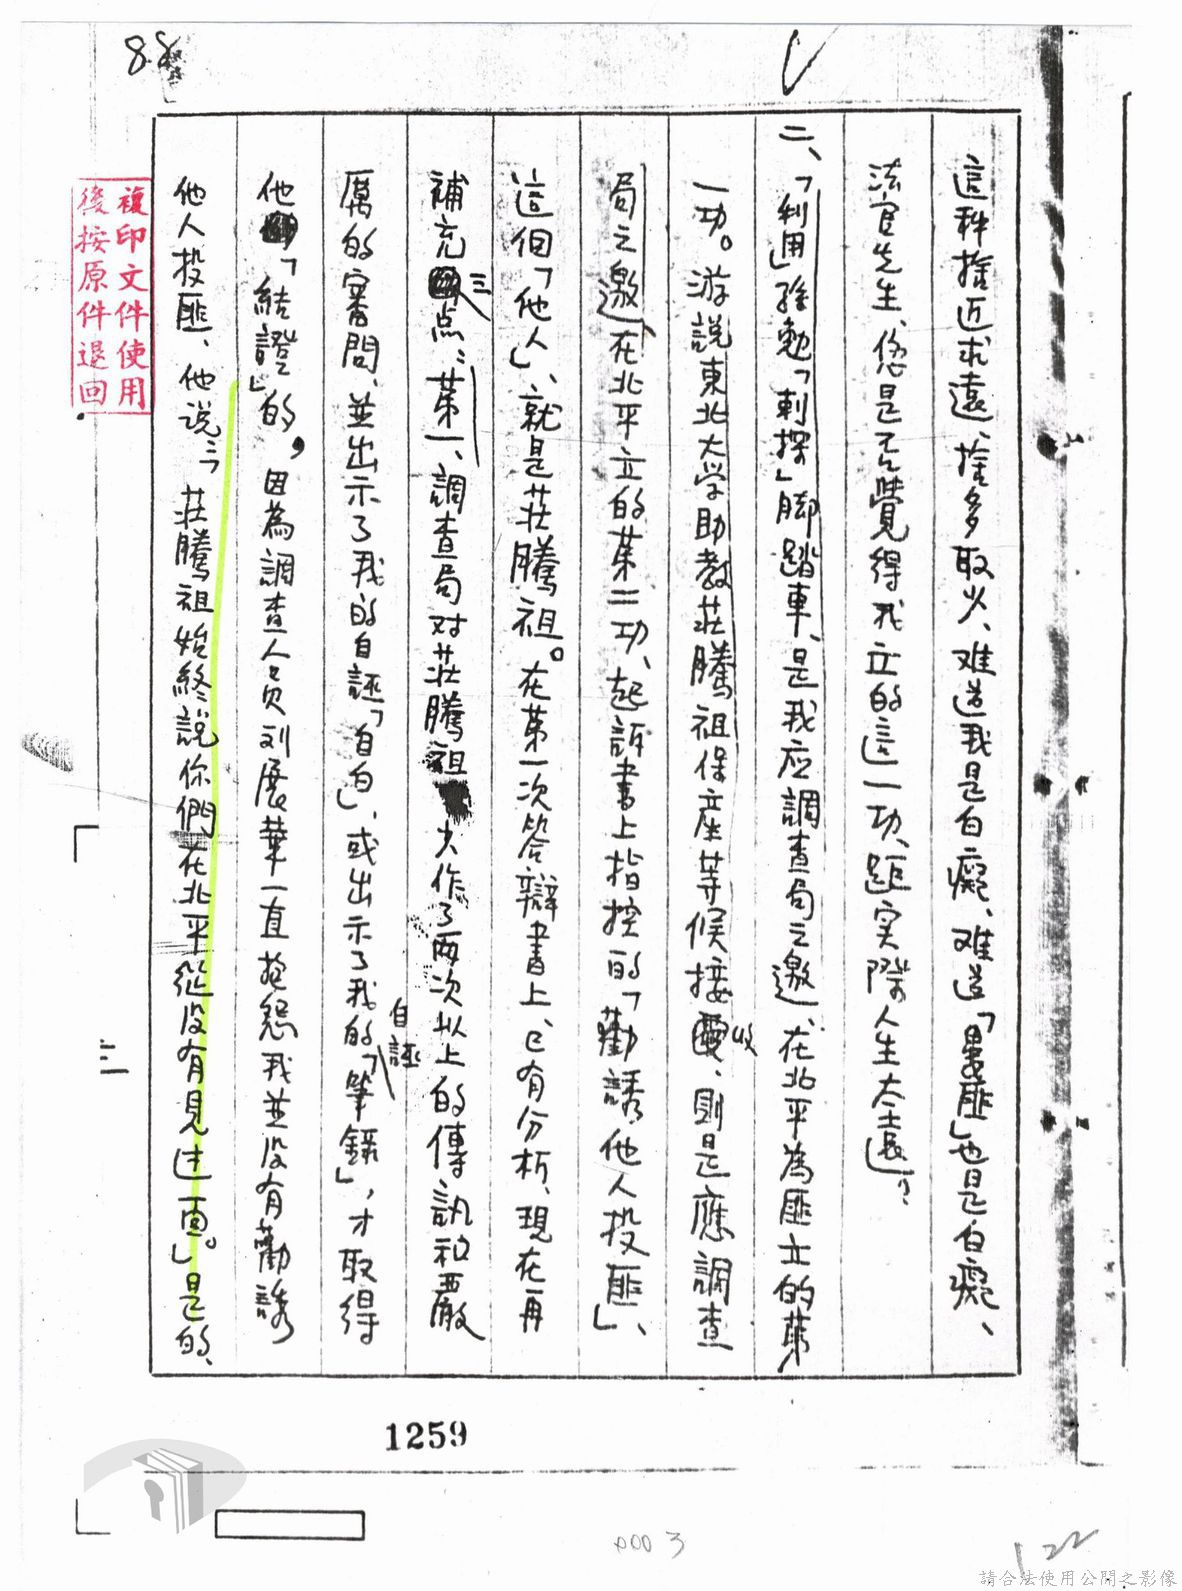 88
這种捨近求遠、捨多取少、难道我是白癡、难道「共匪」也是白癡、
法官先生、您是否覺得我立的這一功、距实際人生太遠？
二、「利用」孫勉「刺探」脚踏車、是我应調查局之邀、在北平為匪立的第
一功。游說東北大学助教莊騰祖保產等候接收、則是應調查
局之邀在北平立的第二功、起訴書上指控的「勸誘他人投匪」、
這個「他人」、就是莊騰祖。在第一次答辯書上、已有分析、現在再
補充三点：第一、調查局对莊騰祖 作了兩次以上的傳訊和嚴
厲的審問、並出示了我的自誣「自白」、或出示了我的自誣「筆錄」，才取得
他「結證」的。因為調查人員刘展華一直抱怨我並没有勸誘
他人投匪、他說：「莊騰祖始終說你們在北平從没有見过面。」是的、
複印文件使用
後按原件退回
三
1259
0003
122
請合法使用公開之影像